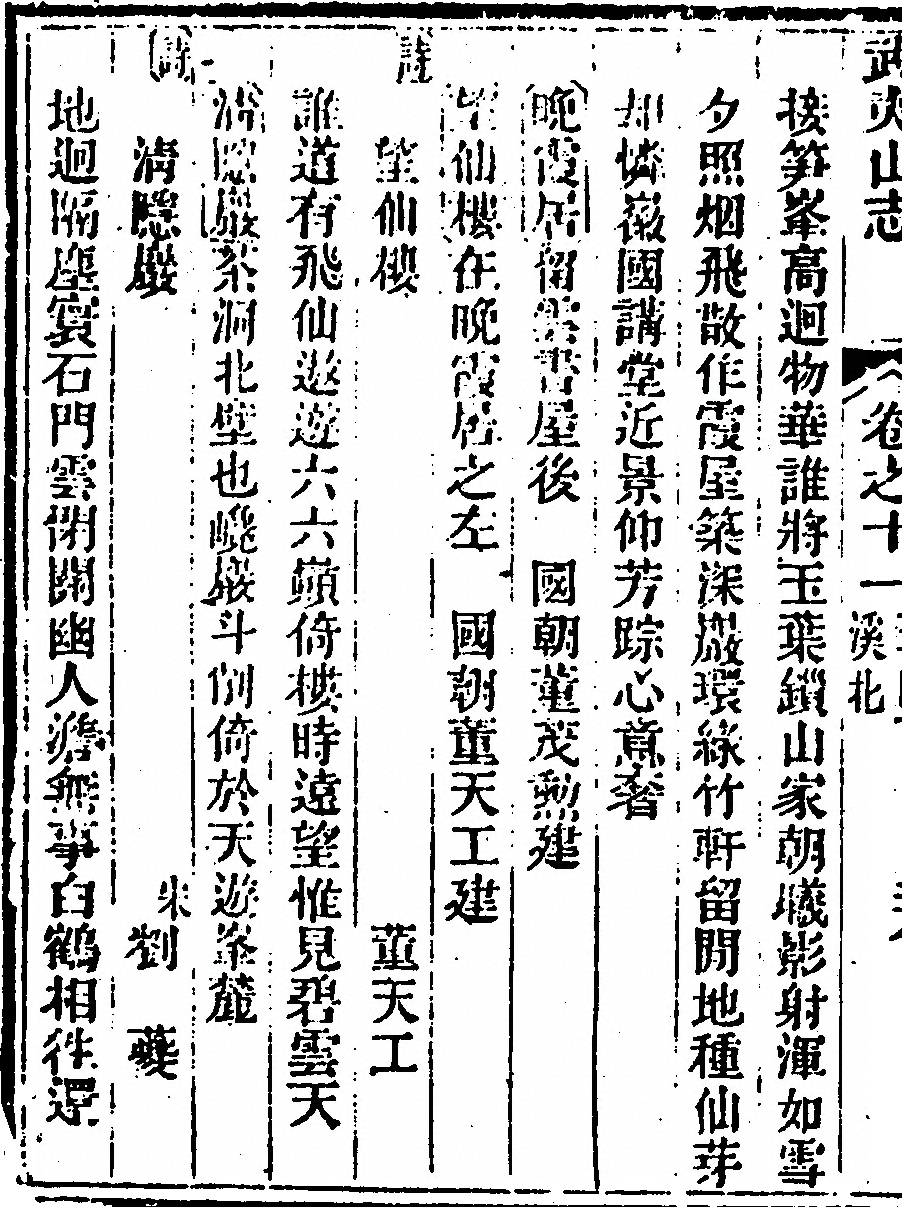 武夷山志 卷之十一 溪北
接笋峯高迥物華誰將玉葉鎖山家朝曦影射渾如雪
夕照烟飛散作霞屋築深巖環綠竹軒留閒地種仙芽
却憐徽國講堂近景仰芳踪心意奢
晚霞居留雲書屋後 國朝董茂勲建
望仙樓在晚霞居之左 國朝董天工建
詩 望仙樓 董天工
誰道有飛仙遨遊六六巔倚樓時遠望惟見碧雲天
清隱巖茶洞北壁也巉巖斗削倚於天遊峯麓
詩 清隱巖 宋劉夔
地迥隔塵寰石門雲閉關幽人澹無事白鶴相徃還